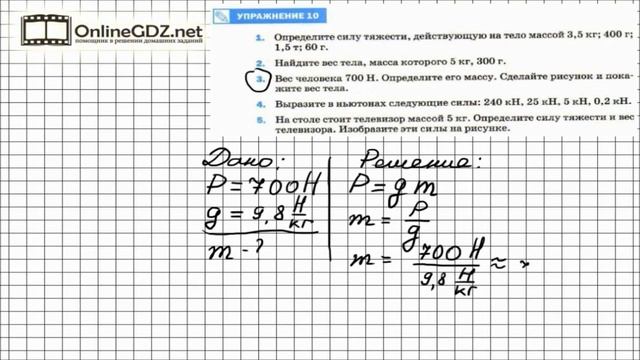 OnlineGDZ.net
помощник в решении домашних заданий
УПРАЖНЕНИЕ 10
1. Определите силу тяжести, действующую на тело массой 3,5 кг; 400 г;
1,5 т; 60 г.
2. Найдите вес тела, масса которого 5 кг, 300 г.
3. Вес человека 700 Н. Определите его массу. Сделайте рисунок и пока-
жите вес тела.
4. Выразите в ньютонах следующие силы: 240 кН, 25 кН, 5 кН, 0,2 кН.
5. На столе стоит телевизор массой 5 кг. Определите силу тяжести и вес
телевизора. Изобразите эти силы на рисунке.
Дано:
P = 700 Н
g = 9,8 Н/кг
m - ?
Решение:
P = g m
m = P/g
m = 700 Н / 9,8 Н/кг ≈